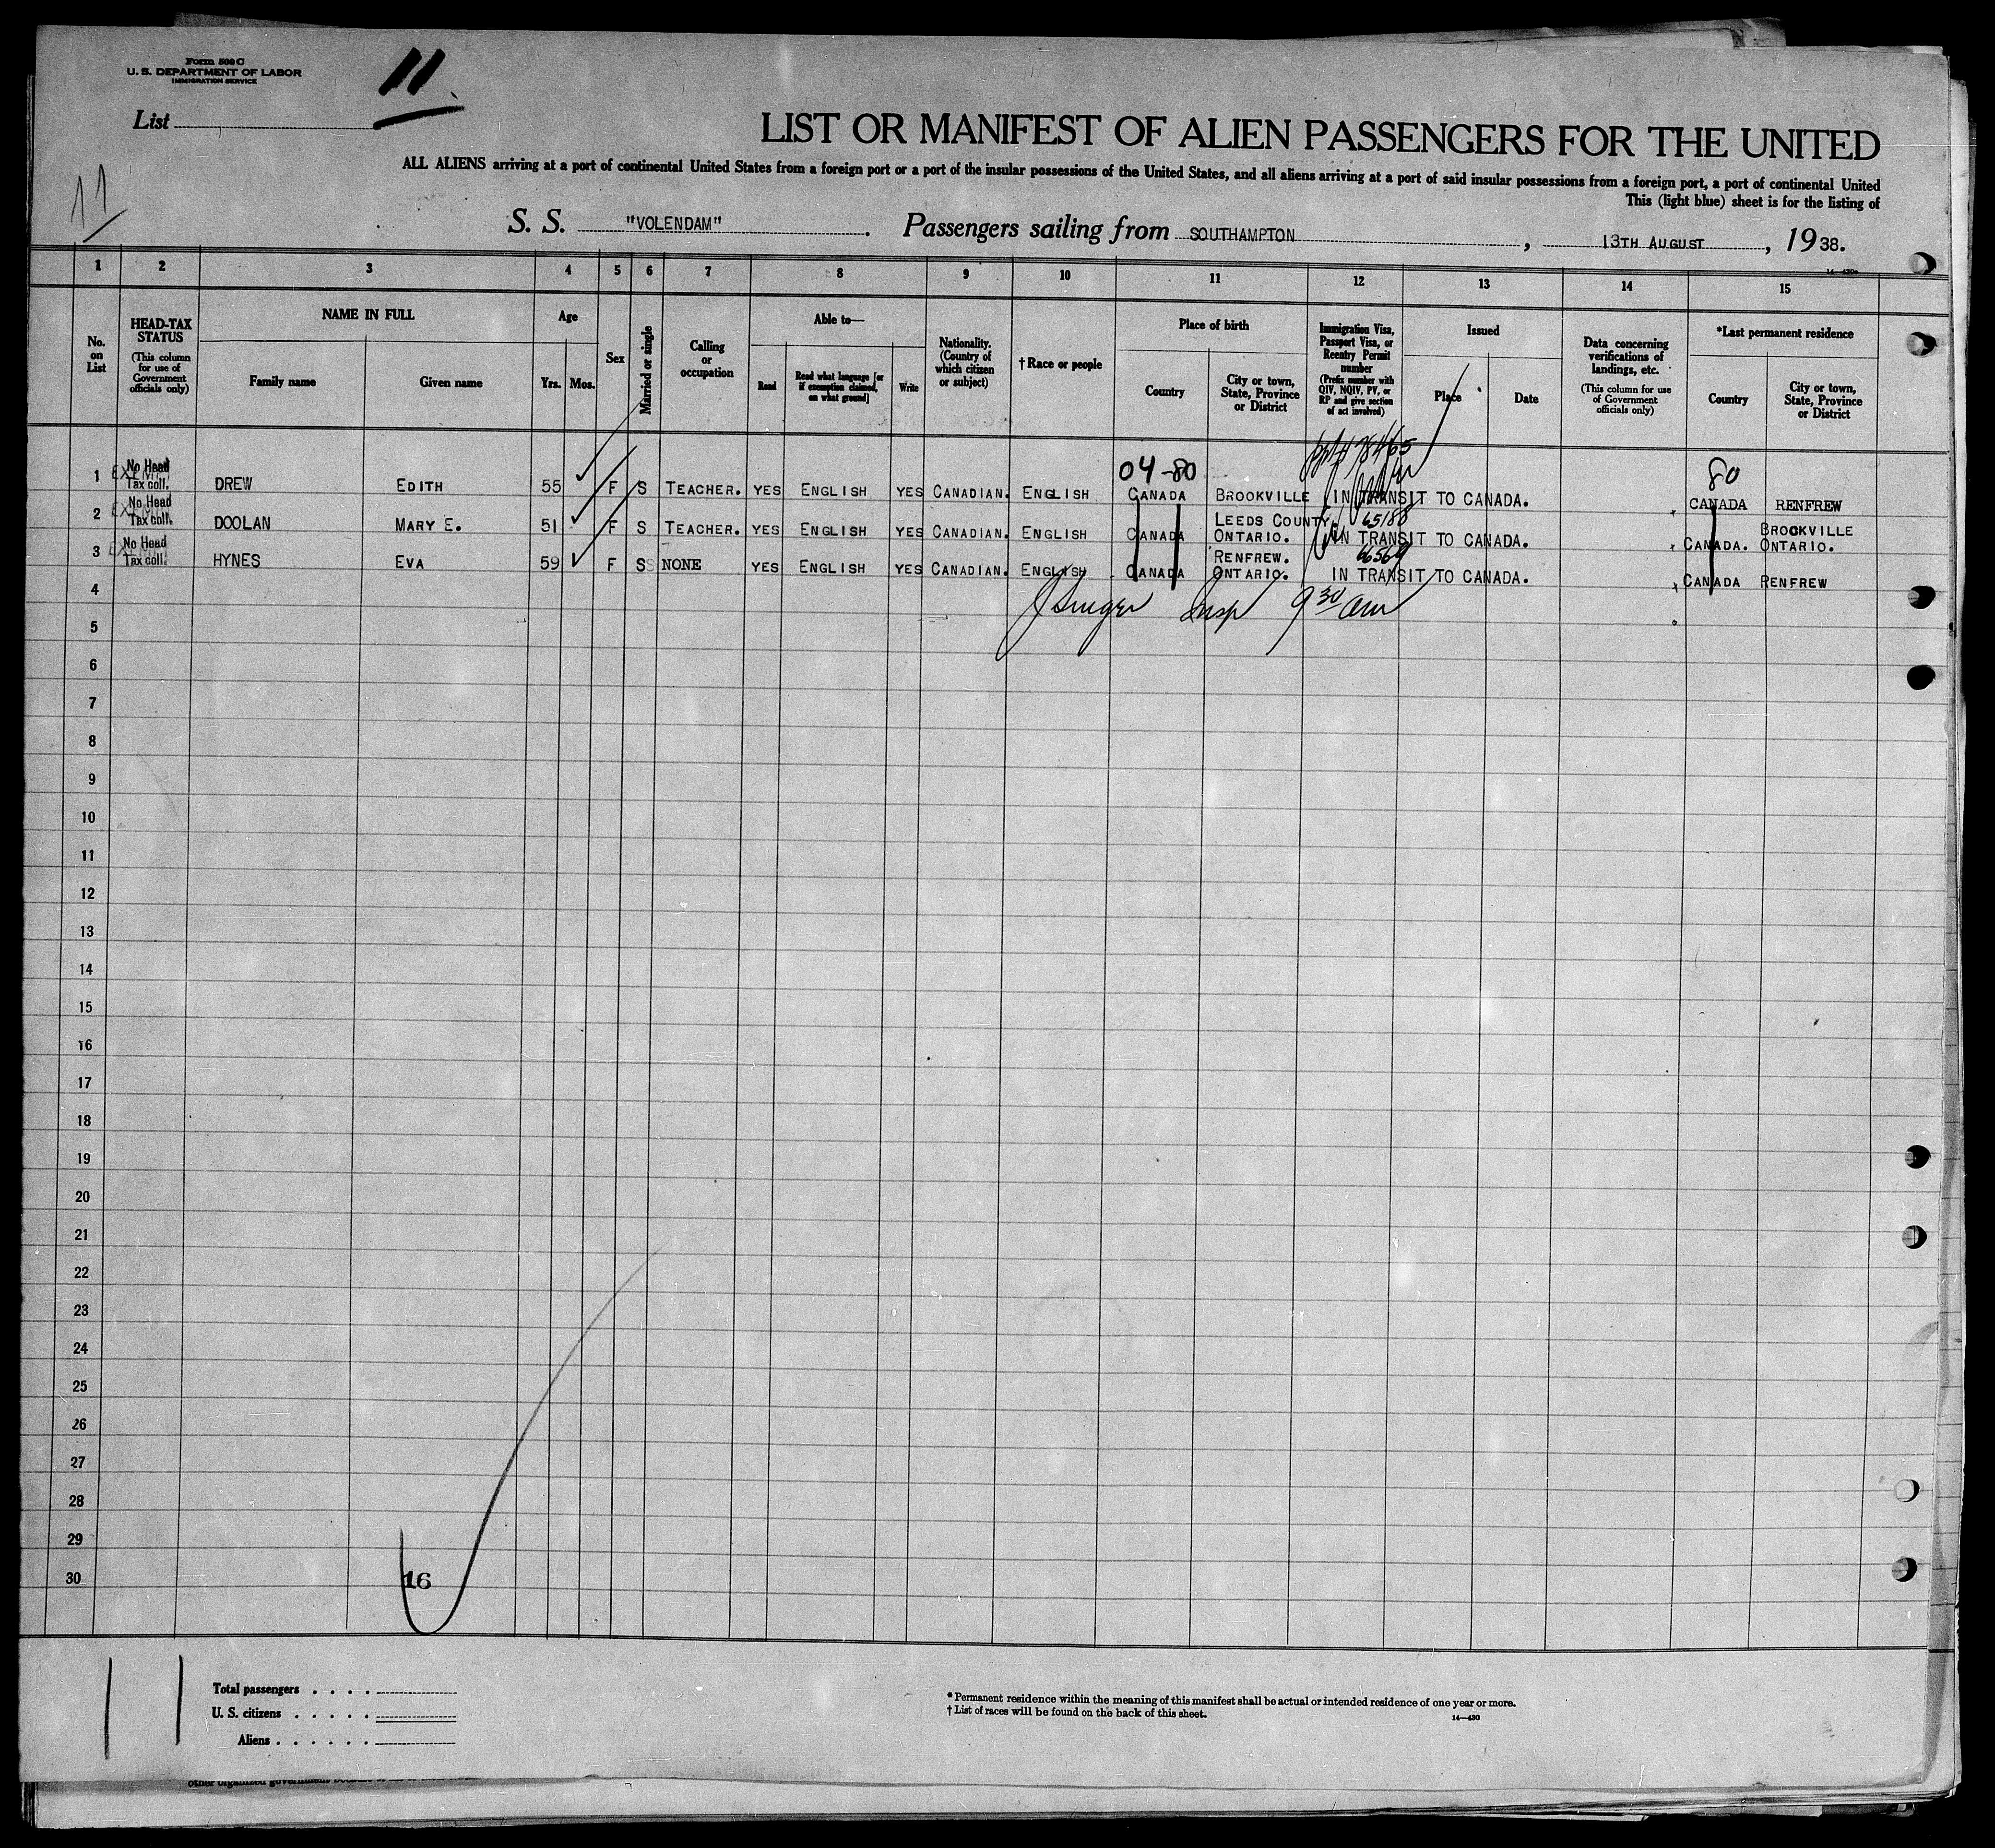 Form 500 C
U. S. DEPARTMENT OF LABOR
IMMIGRATION SERVICE
List
11
11
LIST OR MANIFEST OF ALIEN PASSENGERS FOR THE UNITED
ALL ALIENS arriving at a port of continental United States from a foreign port or a port of the insular possessions of the United States, and all aliens arriving at a port of said insular possessions from a foreign port, a port of continental United
This (light blue) sheet is for the listing of
S. S. "VOLENDAM". Passengers sailing from SOUTHAMPTON, 13TH AUGUST, 1938.
14-430a
1 2 3 4 5 6 7 8 9 10 11 12 13 14 15
No. on List
HEAD-TAX STATUS
(This column for use of Government officials only)
NAME IN FULL
Family name
Given name
Age
Yrs. Mos.
Sex
Married or single
Calling or occupation
Able to—
Read
Read what language [or if exemption claimed, on what ground]
Write
Nationality. (Country of which citizen or subject)
† Race or people
Place of birth
Country
City or town, State, Province or District
Immigration Visa, Passport Visa, or Reentry Permit number
(Prefix number with QIV, NQIV, PV, or RP and give section of act involved)
Issued
Place
Date
Data concerning verifications of landings, etc.
(This column for use of Government officials only)
*Last permanent residence
Country
City or town, State, Province or District
04-80
78465
80
1 No Head Tax coll. DREW EDITH 55 F S TEACHER. YES ENGLISH YES CANADIAN. ENGLISH CANADA BROOKVILLE IN TRANSIT TO CANADA. CANADA RENFREW
2 No Head Tax coll. DOOLAN MARY E. 51 F S TEACHER. YES ENGLISH YES CANADIAN. ENGLISH CANADA LEEDS COUNTY. ONTARIO. 65188 IN TRANSIT TO CANADA. CANADA. BROOKVILLE ONTARIO.
3 No Head Tax coll. HYNES EVA 59 F S NONE YES ENGLISH YES CANADIAN. ENGLISH CANADA RENFREW. ONTARIO. 66569 IN TRANSIT TO CANADA. CANADA RENFREW
4
Insp 9 30 am
5
6
7
8
9
10
11
12
13
14
15
16
17
18
19
20
21
22
23
24
25
26
27
28
29
30
16
Total passengers . . . .
U. S. citizens . . . . .
Aliens . . . . . .
* Permanent residence within the meaning of this manifest shall be actual or intended residence of one year or more.
† List of races will be found on the back of this sheet.
14-430